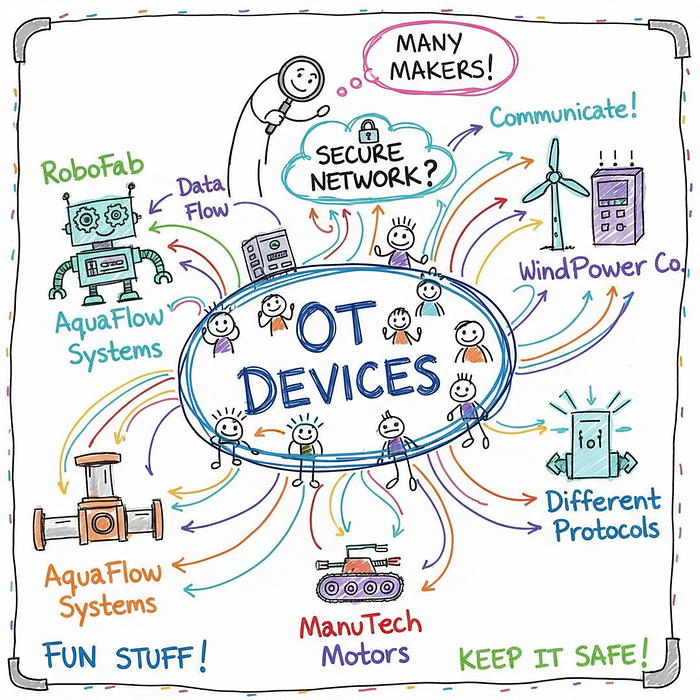 MANY
MAKERS!
Communicate!
SECURE
NETWORK?
RoboFab
Data
Flow
WindPower Co.
AquaFlow
Systems
OT
DEVICES
Different
Protocols
AquaFlow
Systems
ManuTech
Motors
FUN STUFF!
KEEP IT SAFE!